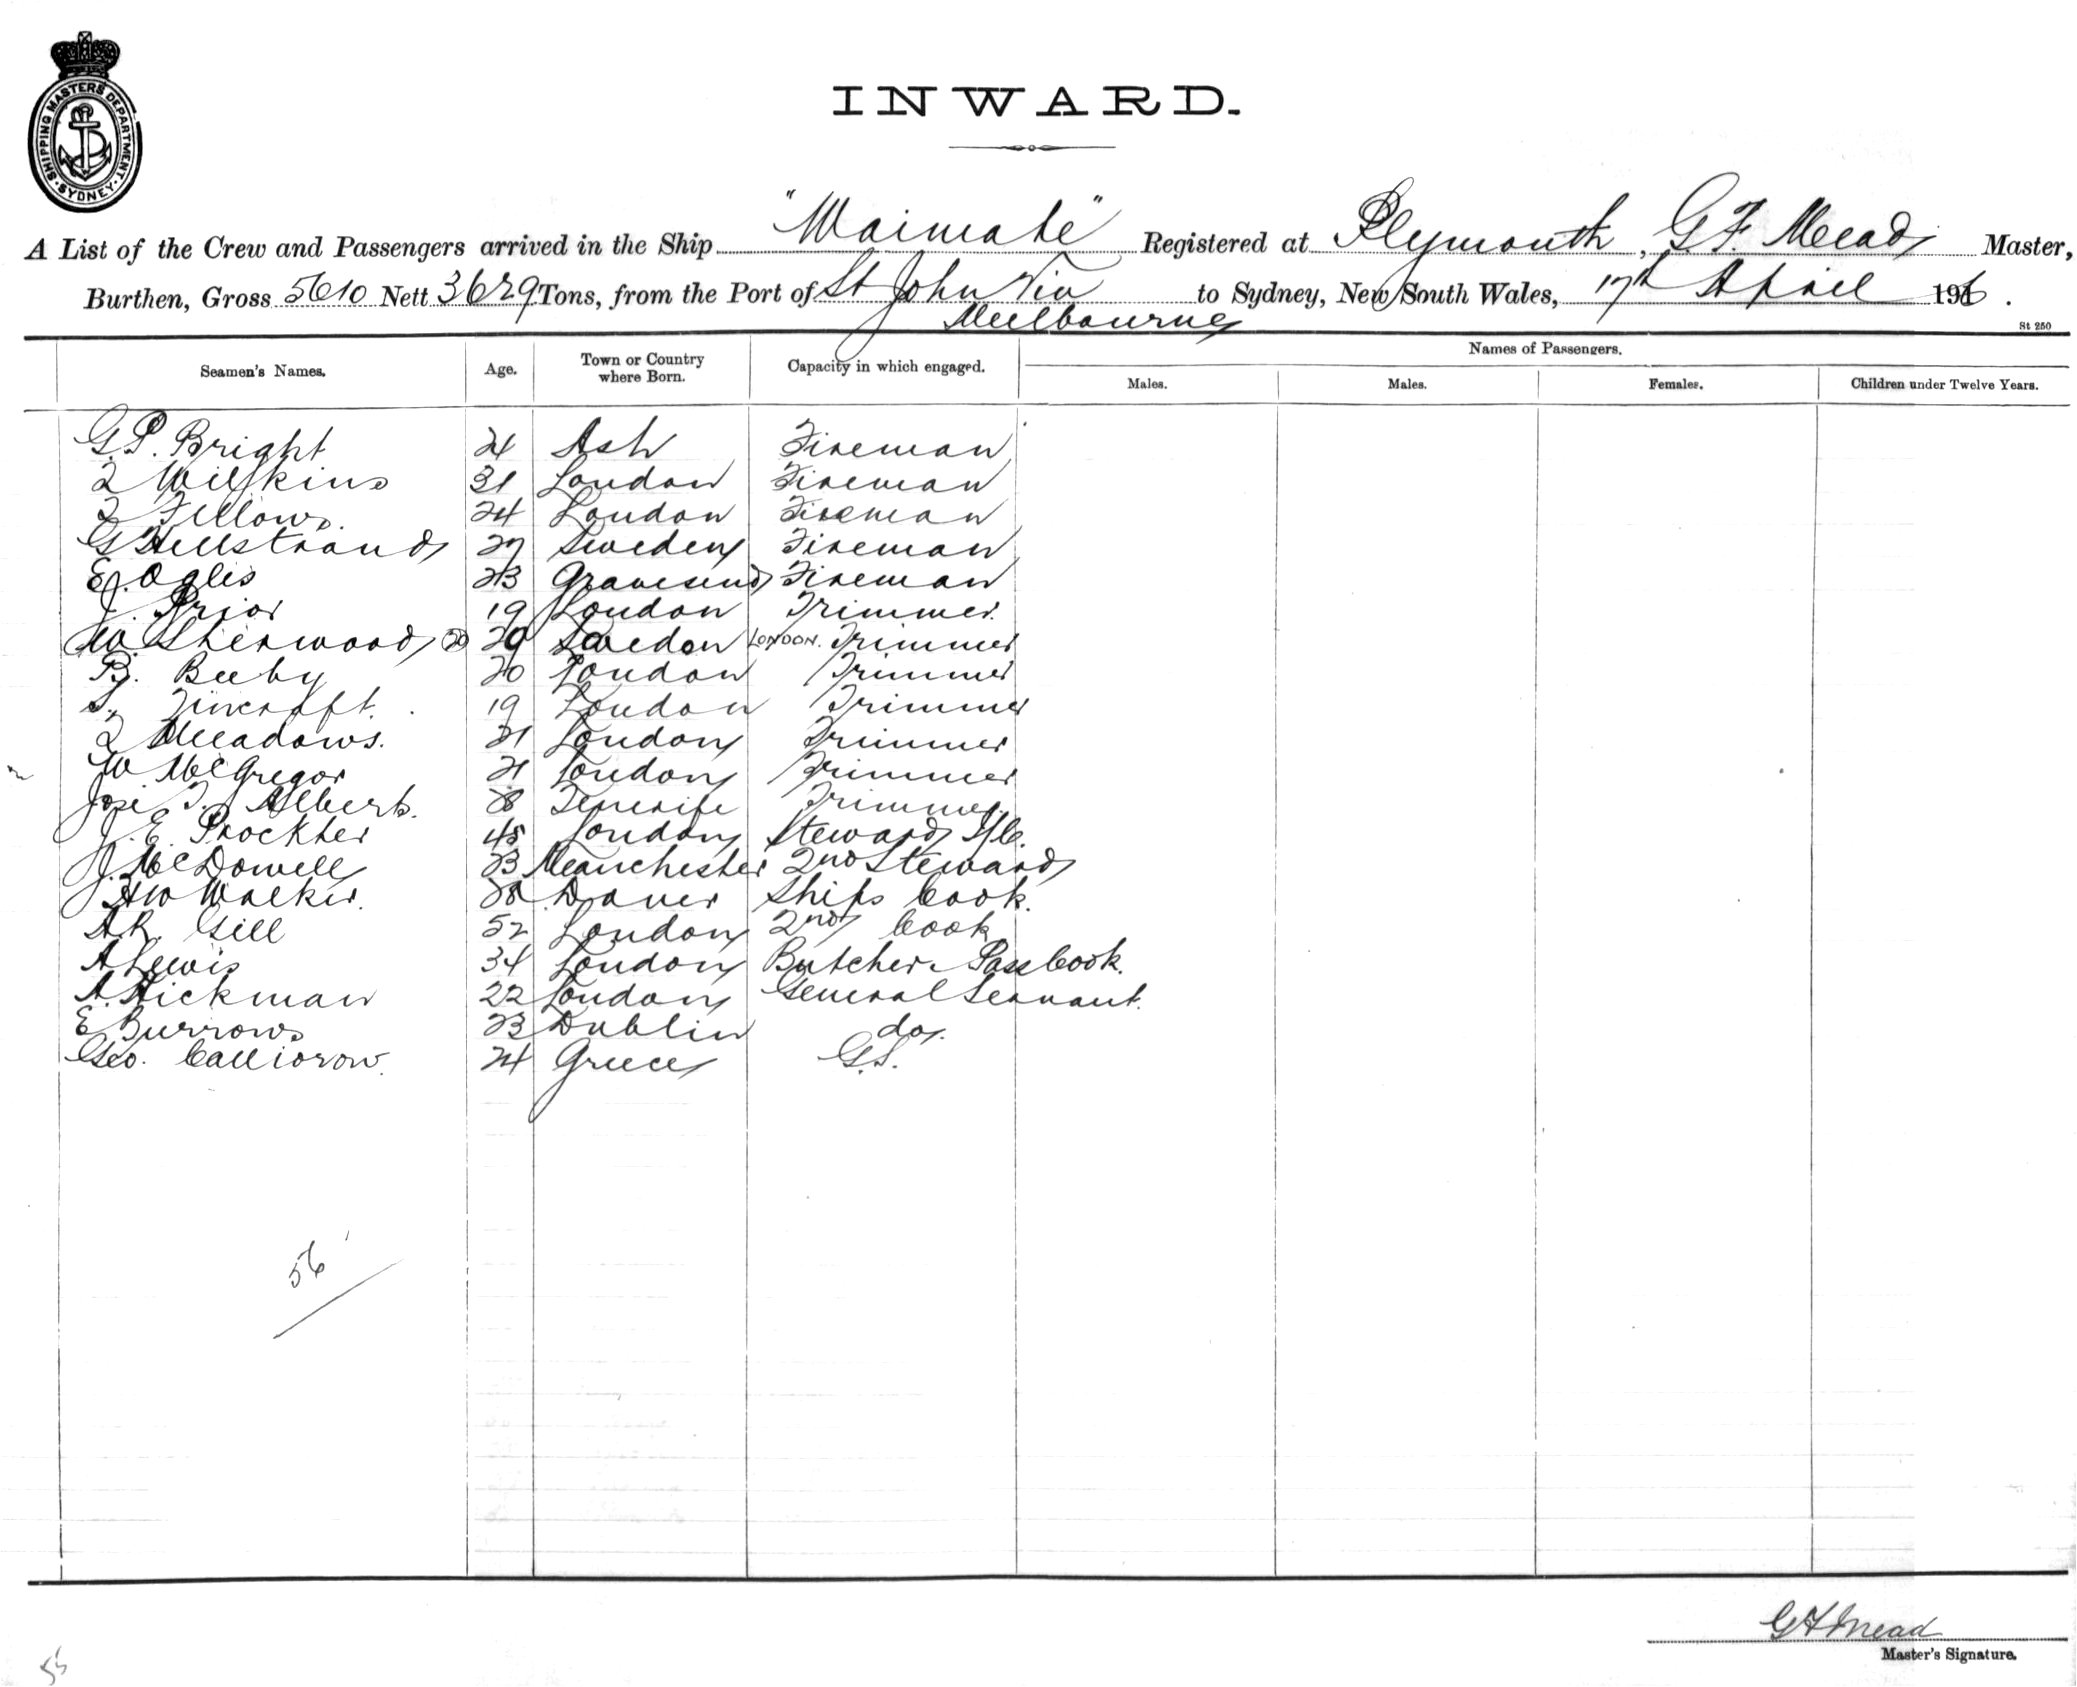 SHIPPING MASTERS DEPARTMENT · SYDNEY ·
INWARD.
A List of the Crew and Passengers arrived in the Ship "Waimate" Registered at Plymouth, G F. Mead Master,
Burthen, Gross 5610 Nett 3629 Tons, from the Port of St John Via Melbourne to Sydney, New South Wales, 17th April 1916.
St 250
Seamen's Names. Age. Town or Country where Born. Capacity in which engaged. Names of Passengers.
Males. Males. Females. Children under Twelve Years.
G.P. Bright 24 Ash Fireman
Wilkins 31 London Fireman
Fellows. 24 London Fireman
G Hellstrand 27 Sweden Fireman
E. Ogles 23 Gravesend Fireman
J. Prior 19 London Trimmer.
W. Sherwood 20 20 Sweden LONDON. Trimmer
B. Beeby 20 London Trimmer
19 London Trimmer
Meadows. 21 London Trimmer
W McGregor 21 London Trimmer
Jose T. Albert. 28 Tenerife Trimmer
J. E. Prockter 45 London Steward I/C.
J. McDowell 23 Manchester 2nd Steward
H W Walker. 28 Dover Ships Cook.
A.R. Gill 52 London 2nd Cook
A Lewis 34 London Butcher & Pass Cook.
A. Hickman 22 London General Servant.
E Burrows 23 Dublin do.
Geo. 24 Greece G.S.
56
G F Mead
Master's Signature.
55